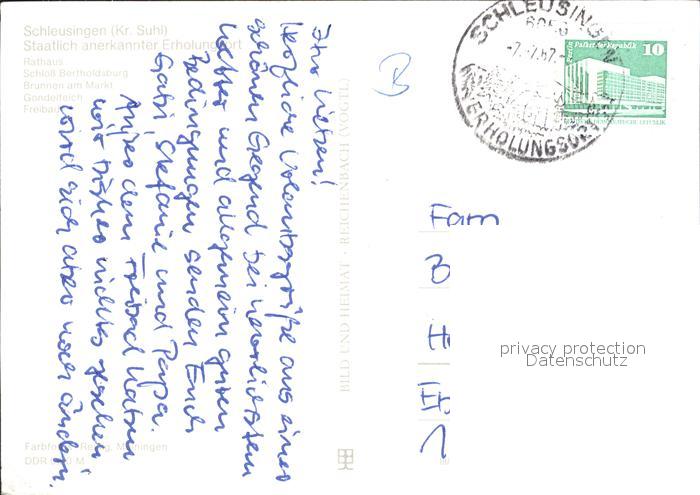 Schleusingen (Kr. Suhl)
Staatlich anerkannter Erholungsort
Rathaus
Schloß Bertholdsburg
Brunnen am Markt
Gondelteich
Freibad
Ihr Lieben!
Herzliche Urlaubsgrüße aus einer
schönen Gegend bei herrlichstem
Wetter und allgemein guten
Bedingungen senden Euch
Gabi, Stefanie und Papa.
Außer dem Freibad haben
wir bisher nichts gesehen,
wird sich aber noch ändern.
BILD UND HEIMAT · REICHENBACH (VOGTL)
B
SCHLEUSINGEN
ERHOLUNGSORT
Palast der Republik
10
Fam
B
H
III
1
privacy protection
Datenschutz
DDR
M